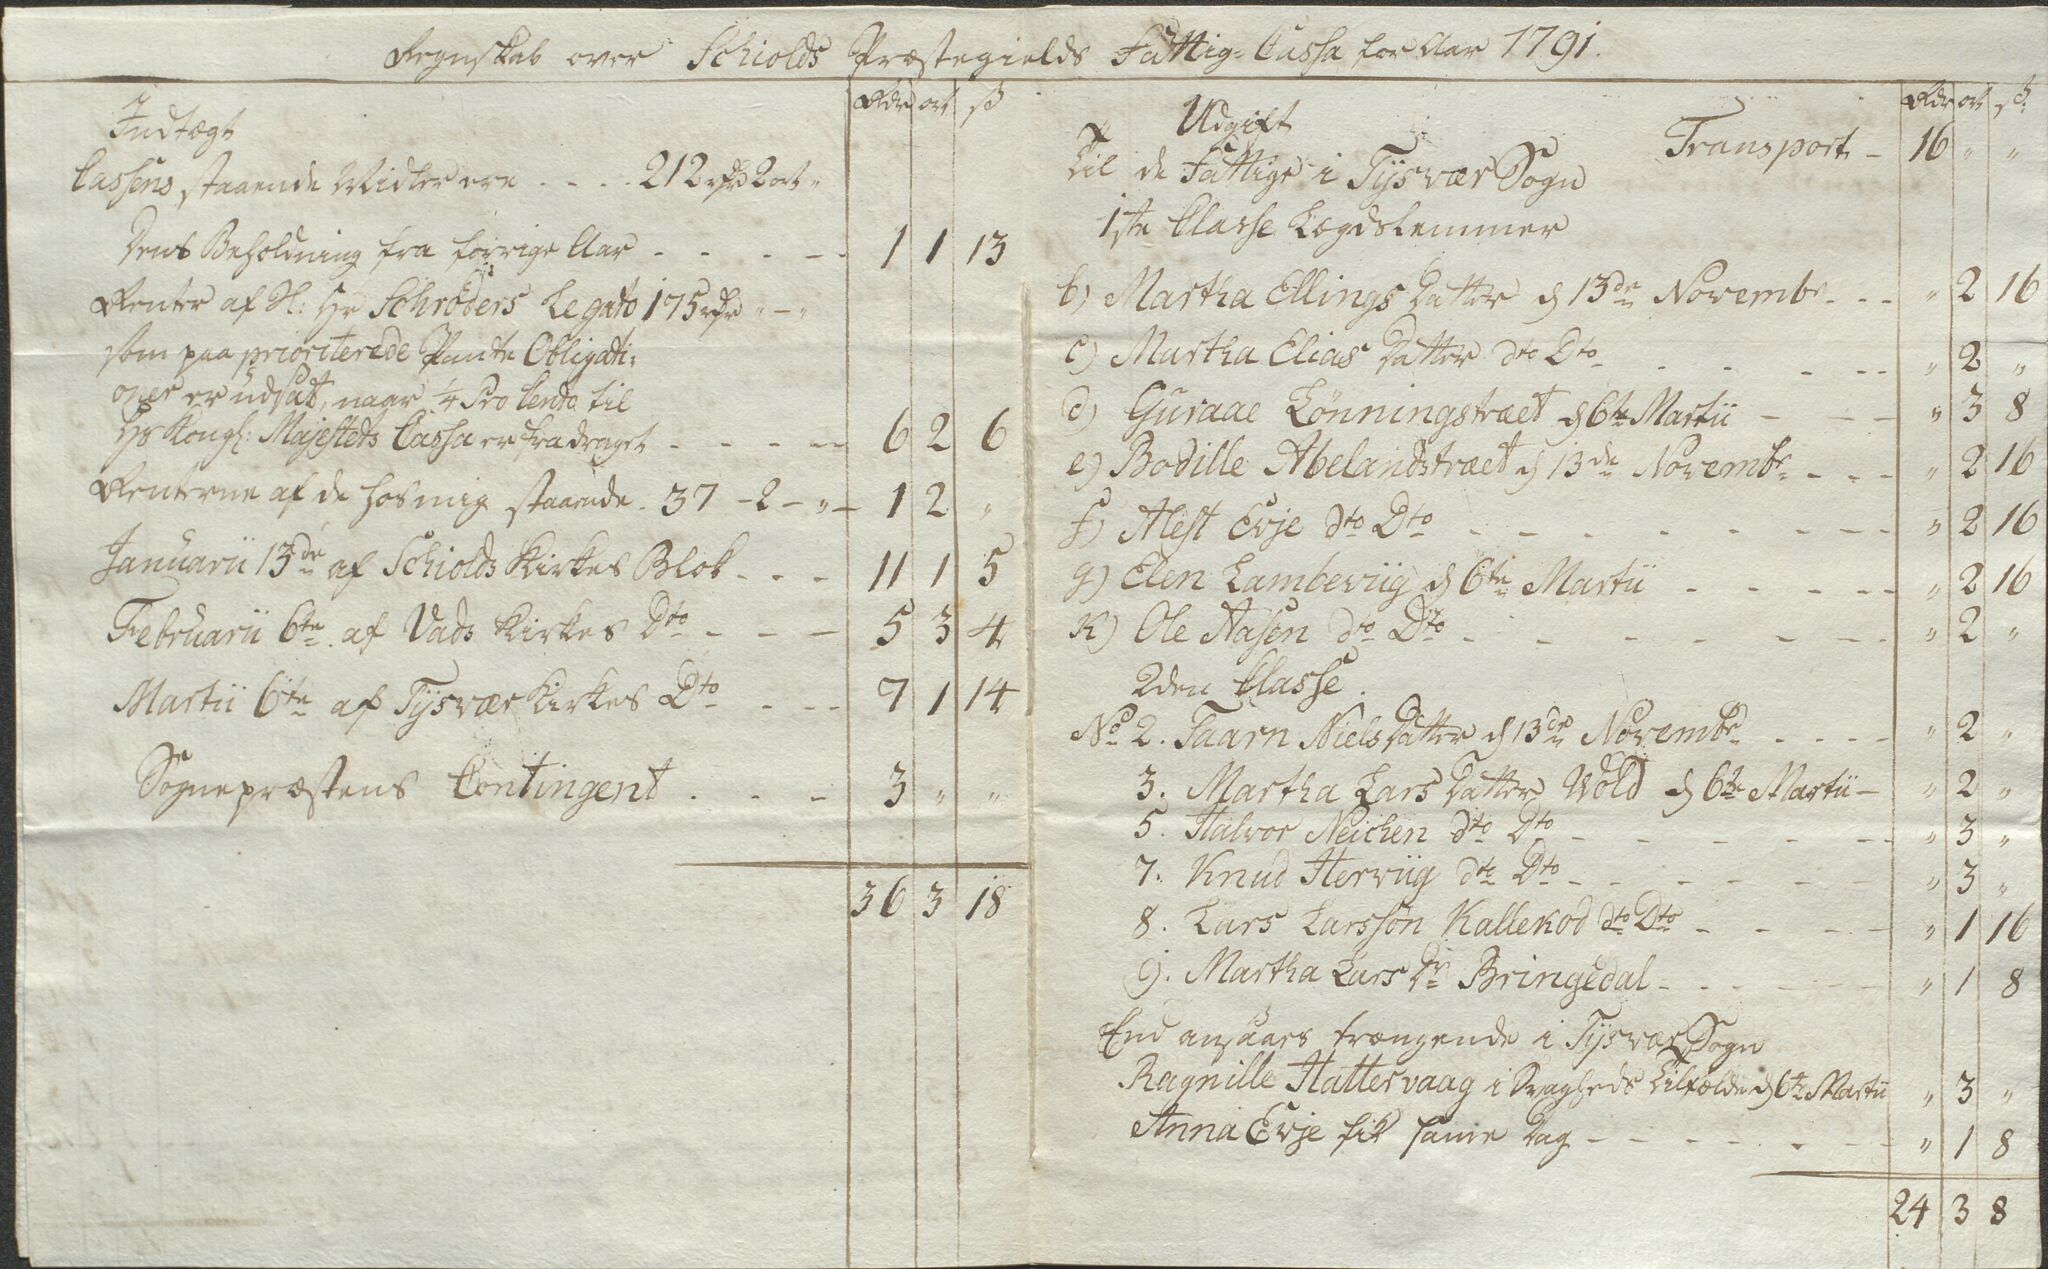 Regnskab over Schiolds Præstegields Fattig-Cassa for Aar 1791.
Rdr ort ß
Indtægt
Cassens staaende Midler ere . . . . 212 rdr 2 ort "
Dens Beholdning fra forrige Aar - - - - - 1 1 13
Renter af S: Hr Schrøders Legato 175 rdr " - "
som paa prioriterede Pante Obligati:
oner er udsat, naar 1/4 Pro Cento til
Hs Kongl: Majestets Cassa er fradraget - - - - - 6 2 6
Renterne af de hos mig staaende - 37 - 2 - " - 1 2 "
Januarii 13de af Schiolds Kirkes Blok - - - 11 1 5
Februarii 6te af Vads Kirkes Dto - - - 5 3 4
Martii 6te af Tysvær Kirkes Dto - - - 7 1 14
Sognepræstens Contingent . - - 3 " "
36 3 18
Rdr ort ß
Udgift
Transport - 16 " "
Til de Fattige i Tysvær Sogn
1ste Classe Lægdslemmer
b) Martha Ellings Datter d 13de Novembr - - - " 2 16
c) Martha Elias Datter dto Dto - - - - - " 2 "
d) Guraae Lønningstræet d 6te Martii - - - " 3 8
e) Bodille Abelandstræet d 13de Novembr - - - " 2 16
f) Alest Evje dto Dto - - - - - - - " 2 16
g) Elen Lambeviig d 6te Martii - - - - - " 2 16
K) Ole Aasen do Dto - - - - - - - " 2 "
2den Classe.
No 2. Taarn Niels Datter d 13de Novembr - - - - " 2 "
3. Martha Lars Datter Wold d 6te Martii - " 2 "
5. Halvor Neichen dto Dto - - - - - - " 3 "
7. Knud Herviig dto Dto - - - - - - " 3 "
8. Lars Larssøn Kallekod dto Dto - - - - " 1 16
9. Martha Lars Dr Bringedal - - - - - " 1 8
End anzaars trængende i Tysvær Sogn
Ragnille Hattervaag i Svagheds Tilfælde d 6te Martii " 3 "
Anna Evje fik samme Dag - - - - - - - " 1 8
24 3 8